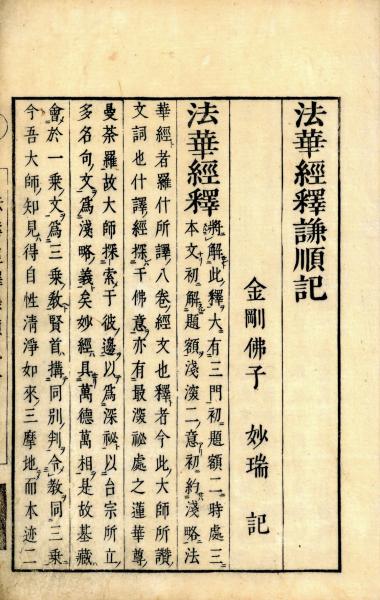 法華經釋謙順記
金剛佛子 妙瑞 記
法華經釋 將解此釋大有三門初題額二時處三
本文初解題額淺深二意初約淺略法
華經者羅什所譯八卷經文也釋者今此大師所讚
文詞也什譯經探于佛意亦有最深祕處之蓮華尊
曼荼羅故大師探索于彼邊以爲深祕以台宗所立
多名句文爲淺略義矣妙經具萬德萬相是故基藏
會於一乘文爲三乘教賢首搆同別判令教同三乘
今吾大師知見得自性清淨如來三摩地而本迹二